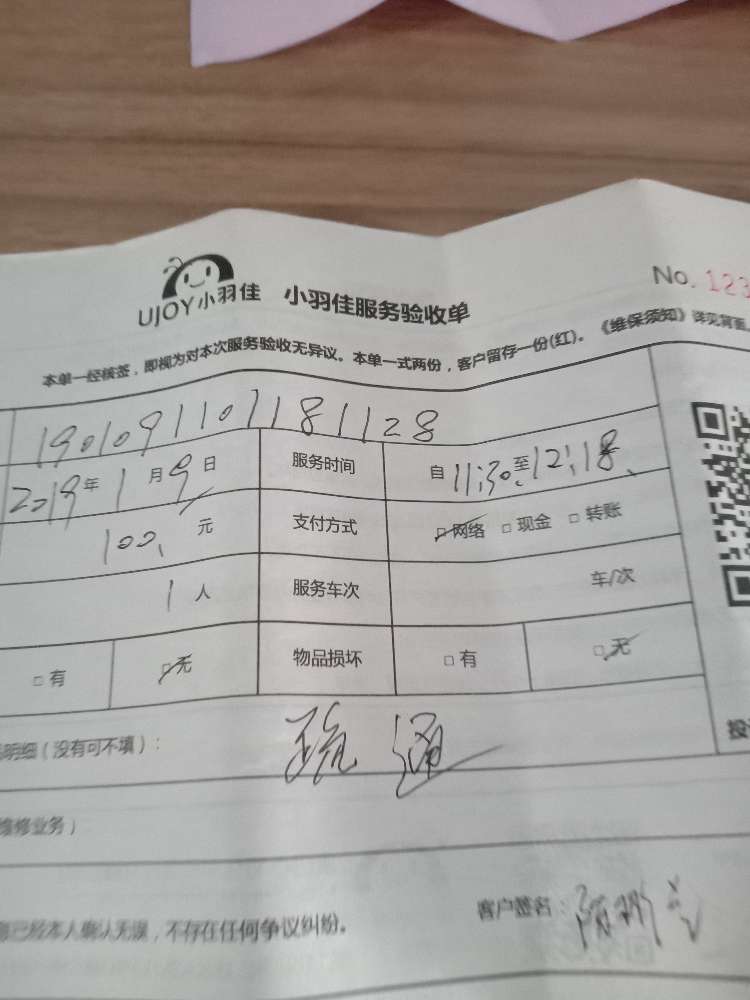 UJOY小羽佳 小羽佳服务验收单
No. 123
本单一经核签，即视为对本次服务验收无异议。本单一式两份，客户留存一份(红)。《维保须知》详见背面
190109110718 1128
2019年1月9日 服务时间 自11:30至12:18
100元 支付方式 网络 现金 转账
1人 服务车次 车/次
有 无 物品损坏 有 无
明细（没有可不填）： 疏通
维修业务）
已经本人确认无误，不存在任何争议纠纷。 客户签名：